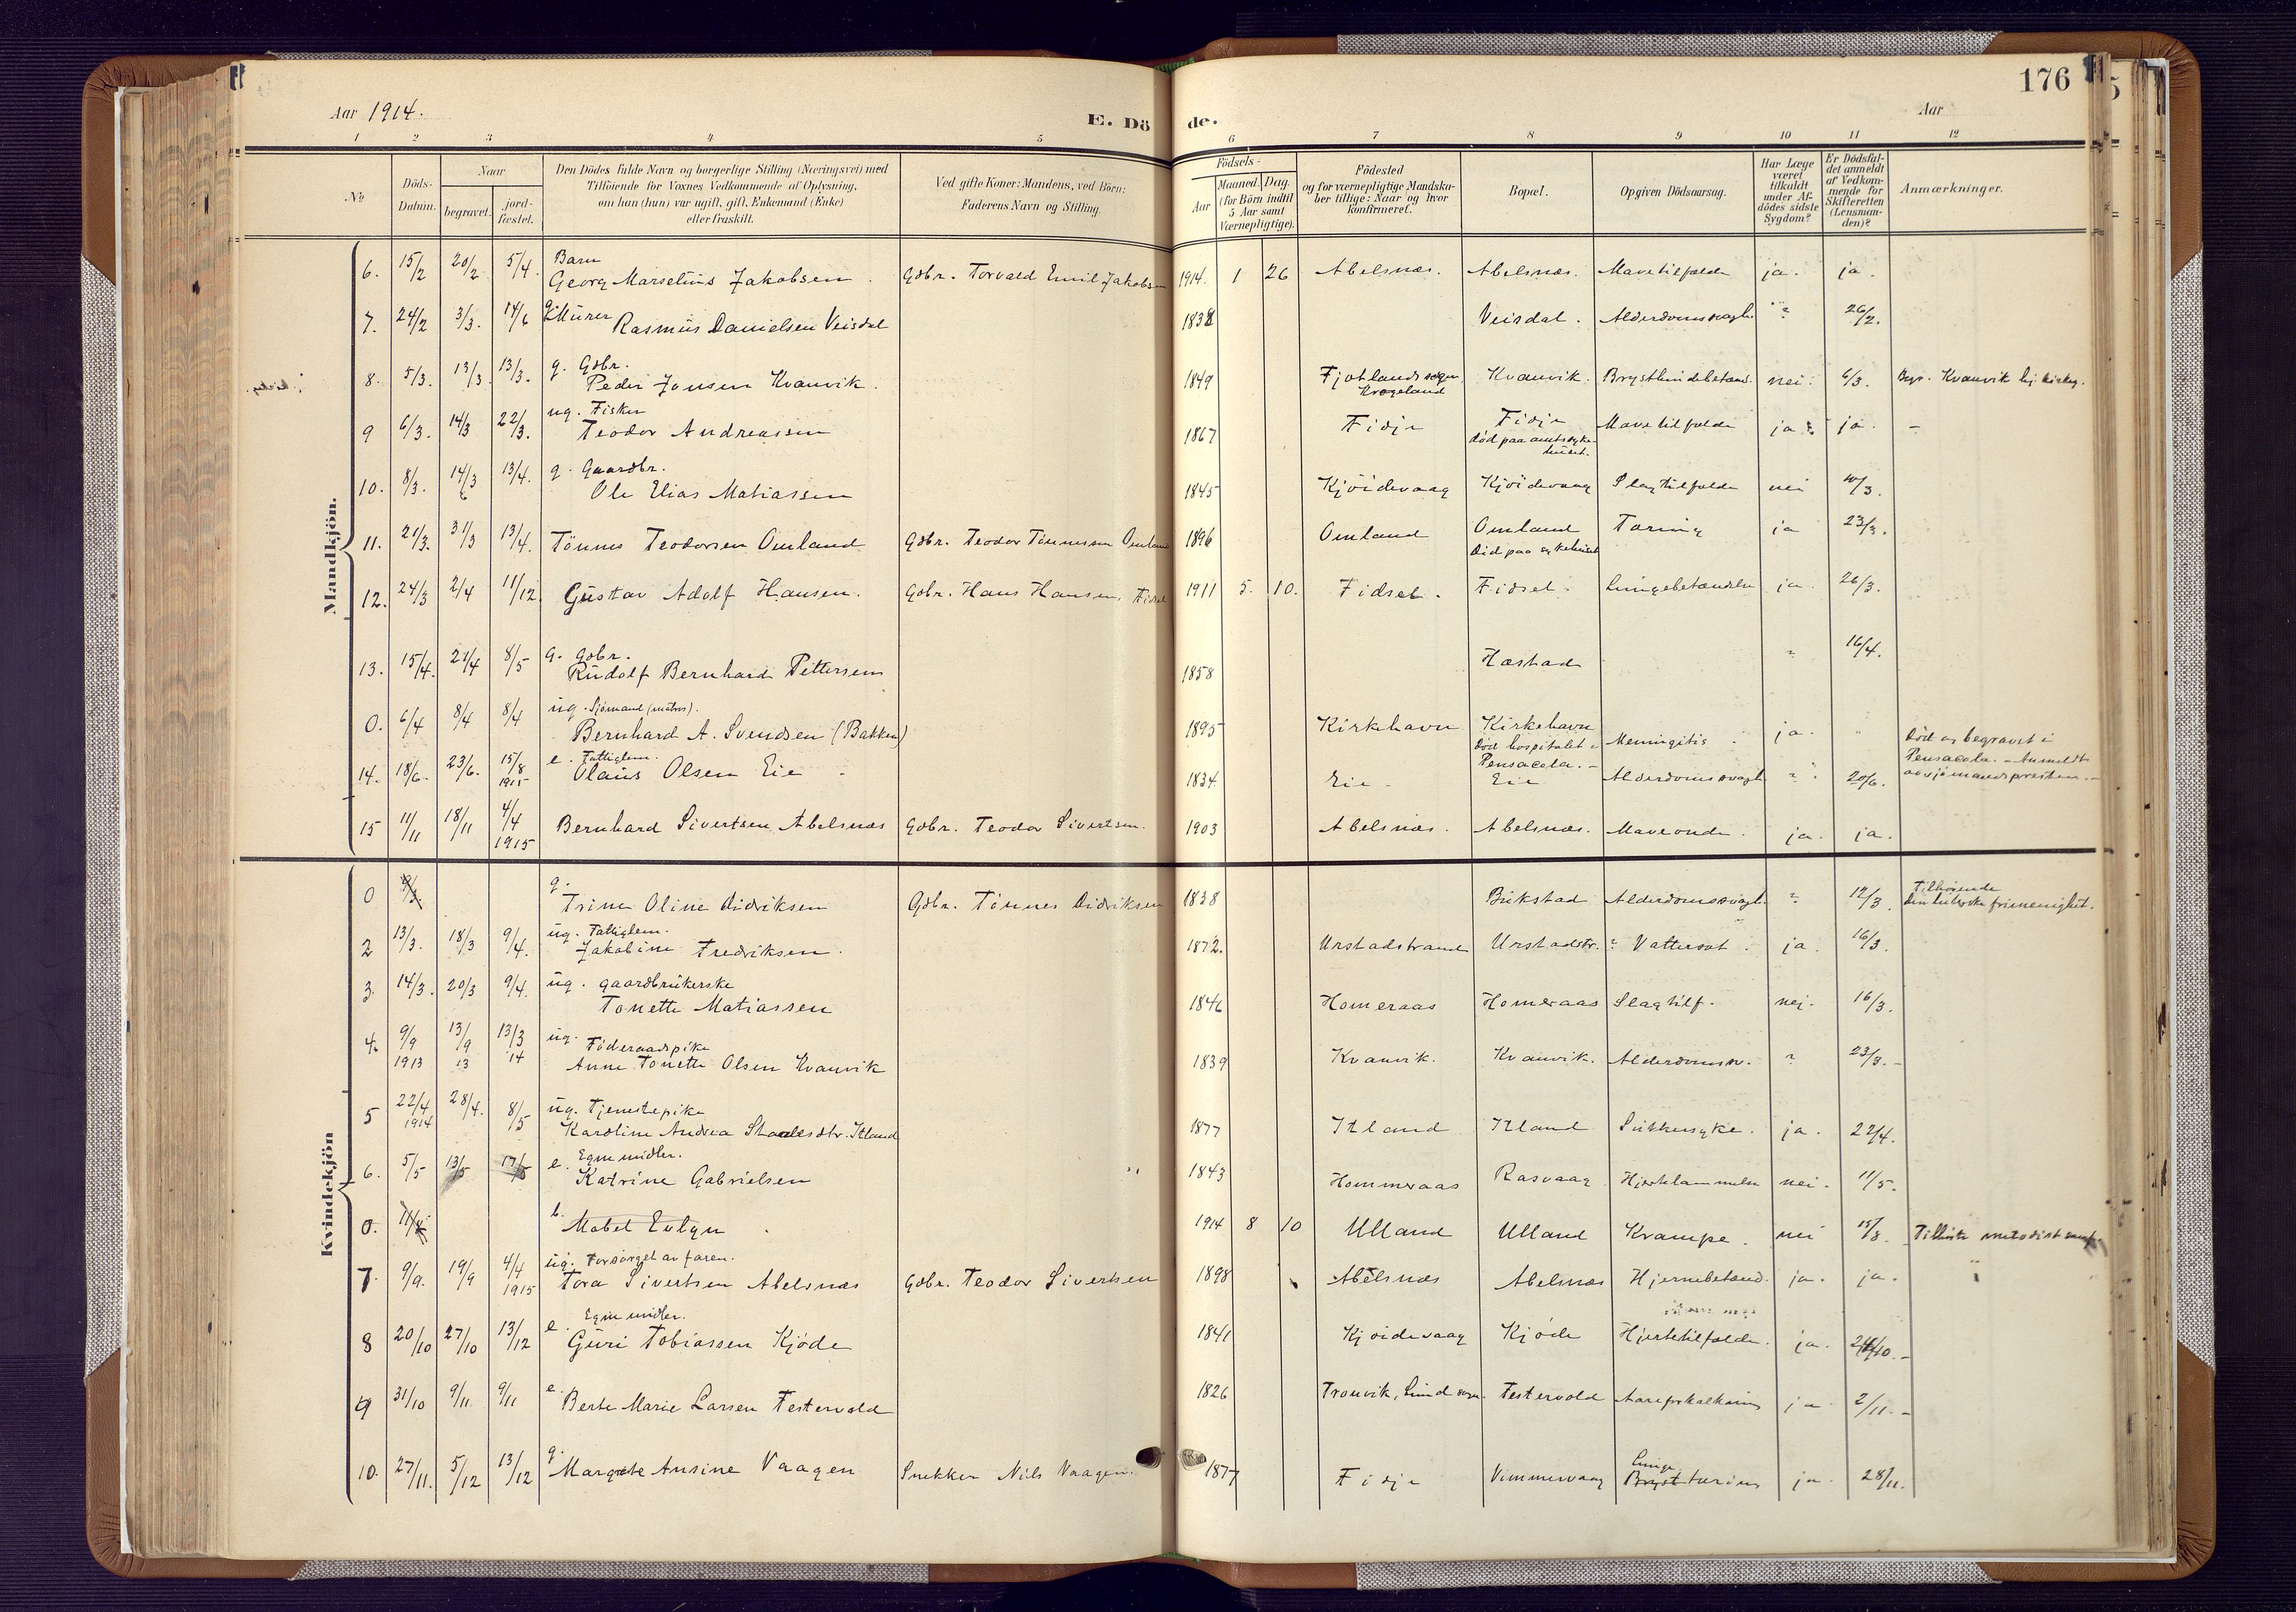 176
Aar 1914.
E. Dö de.
Aar
1 2 3 4 5 6 7 8 9 10 11 12
No
Döds-Datum.
Naar
begravet.
jord-fæstet.
Den Dödes fulde Navn og borgerlige Stilling (Næringsvei) med
Tilföiende for Voxnes Vedkommende af Oplysning,
om han (hun) var ugift, gift, Enkemand (Enke)
eller fraskilt.
Ved gifte Koner: Mandens, ved Börn:
Faderens Navn og Stilling.
Födsels-
Aar
Maaned. Dag.
(for Börn indtil
5 Aar samt
Værnepligtige).
Födested
og for værnepligtige Mandska-
ber tillige: Naar og hvor
konfirmeret.
Bopæl.
Opgiven Dödsaarsag.
Har Læge
været
tilkaldt
under Af-
dödes sidste
Sygdom?
Er Dödsfal-
det anmeldt
af Vedkom-
mende for
Skifteretten
(Lensman-
den)?
Anmærkninger.
Mandkjön.
6. 15/2 20/2 5/4. Barn
Georg Marselius Jakobsen. Gdbr. Torvald Emil Jakobsen 1914. 1 26 Abelsnæs. Abelsnæs. Mavetilfælde ja. ja.
7. 24/2 3/3. 14/6 Murer
Rasmus Danielsen Veisdal Veisdal. Alderdomssvagh. ? 26/2.
8. 5/3. 13/3. 13/3. g. Gdbr.
Peder Jonsen Kvanvik. 1849 Fjotlands sogn Kvanvik. Brysthindebetænd. nei. 6/3. Kvanvik
9 6/3. 14/3 22/3. ug. Fisker
Teodor Andreassen 1867 Fidje Fidje Mavetilfælde ja. ja. -
død paa amtssyke-
huset.
10. 8/3. 14/3 13/4. g. Gaardbr.
Ole Elias Matiassen 1845 Kjöidevaag Kjöidevaag Slagtilfælde nei 10/3.
11. 21/3. 31/3 13/4. Tönnes Teodorsen Omland Gdbr. Teodor Tönnessen Omland 1896 Omland Omland Tæring ja 23/3.
Död paa sykehuset
12. 24/3 2/4 11/12. Gustav Adolf Hansen. Gdbr. Hans Hansen, Fidsel 1911 5. 10. Fidsel. Fidsel. Lungebetændelse ja. 26/3.
13. 15/4. 21/4 8/5 g. gdbr.
Rudolf Bernhard Pettersen 1858 Hæstad ? 16/4.
0. 6/4 8/4 8/4 ug. Sjömand (matros).
Bernhard A. Svendsen (Bakken) 1895 Kirkehavn Kirkehavn Meningitis ja. " Död og begravet i
Död hospitalet i
Pensacola.- Pensacola. - Anmeldt
av sjömandspresten.-
14. 18/6. 23/6. 15/8 1915 e. Fattiglem.
Olaus Olsen Eie 1834. Eie. Eie Alderdomssvagh. ? 20/6.
15 11/11 18/11 4/4 1915 Bernhard Sivertsen Abelsnæs Gdbr. Teodor Sivertsen. 1903 Abelsnæs. Abelsnæs. Maveonde. ja. ja.
Kvindekjön
0 9/3. g.
Trine Oline Didriksen Gdbr. Tönnes Didriksen 1838 Birkstad Alderdomssvagh. ? 12/3. Tilhörende
Den lutherske frimenighet.
2 13/3. 18/3 9/4. ug. Fattiglem.
Jakobine Fredriksen. 1872. Urstadstrand Urstadstr. ? Vattersot. ja. 16/3.
3. 14/3. 20/3 9/4. ug. gaardbrukerske
Tonette Matiassen 1846 Homeraas Homeraas Slagtilf. nei. 16/3.
4. 9/9 1913 13/9 13 13/3 '14 ug. Föderaadspike
Anne Tonette Olsen Kvanvik 1839 Kvanvik. Kvanvik. Alderdomssv. ? 23/3.-
5 22/4 1914 28/4. 8/5 ug. Tjenestepike
Karoline Andrea Itland 1877 Itland Itland Sukkersyke. ja. 22/4.
6. 5/5 13/5 17/5 e. Egne midler.
Katrine Gabrielsen 1843 Hommeraas Rasvaag Hjertelammelse nei. 11/5.
0. 11/8 b.
Mabel Evlyn 1914 8 10 Ulland Ulland Krampe. nei 15/8. Tilhörte metodist
7. 9/9. 19/9 4/4 1915 ug. Forsörget av faren.
Tora Sivertsen Abelsnæs Gdbr. Teodor Sivertsen 1898 Abelsnæs Abelsnæs Hjernebetænd. ja. ja.
8 20/10 27/10 13/12 e. Egne midler.
Guri Tobiassen Kjöde 1841 Kjöidevaag Kjöde Hjertetilfælde. ja.
9 31/10 9/11 9/11 e.
Berte Marie Larsen Testervold 1826 Tronvik, Lund sogn. Testervold Aareforkalkning ja 2/11.-
10. 27/11. 5/12 13/12 g.
Margrete Ansine Vaagen Snekker Nils Vaagen. 1877 Fidje Vimmervaag Lunge
Bryst tæring ja. 28/11.